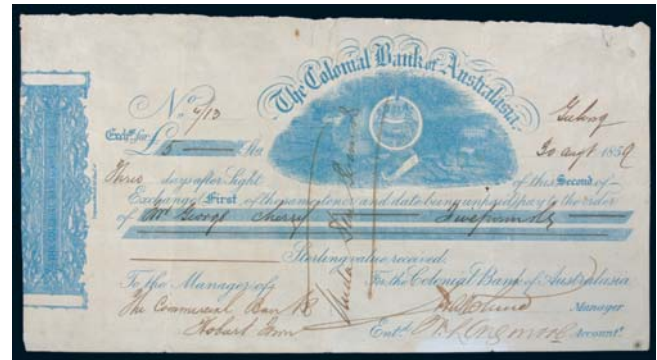 The Colonial Bank of Australasia.
No 4/13
Geelong
Exche. for £ 5 Stg.
30 augt 1859
Three days after Sight of this Second of
Exchange First of the same tenor and date being unpaid pay to the order
of Mr George Cherry Five pounds
Sterling value received.
To the Manager of For the Colonial Bank of Australasia
The Commercial Bank Manager
Hobart Town Entd. Account.